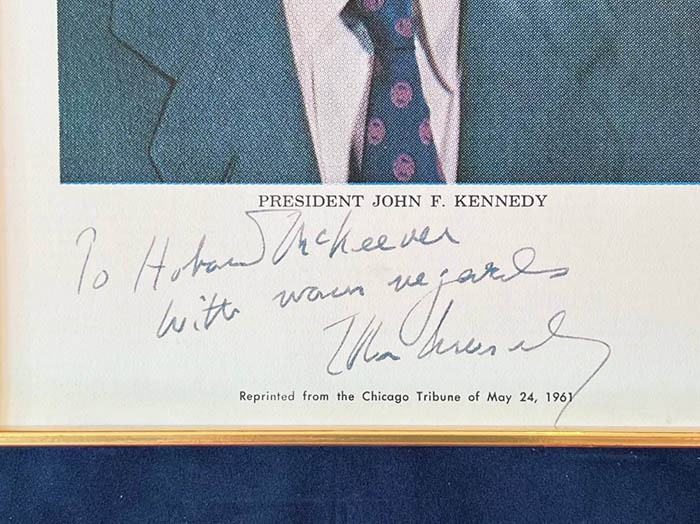 PRESIDENT JOHN F. KENNEDY
To Hobard McKeever
with warm regards
John Kennedy
Reprinted from the Chicago Tribune of May 24, 1961